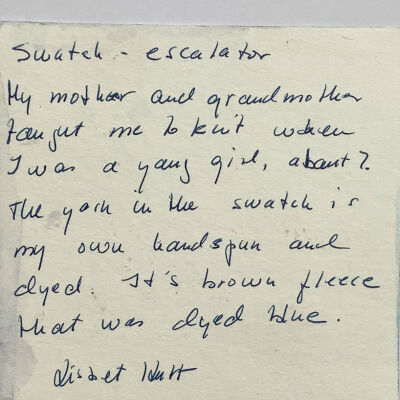 Swatch - escalator
My mother and grandmother
taught me to knit when
I was a yang girl, about 7.
The yarn in the swatch is
my own handspun and
dyed. It's brown fleece
that was dyed blue.
Lisbet